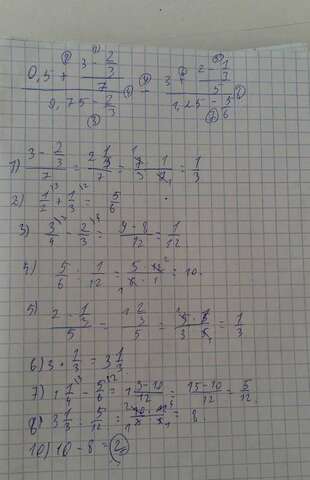 (0,5 + (3 - 2/3)/7)/(0,75 - 2/3) - (3 + (2 - 1/3)/5)/(1,25 - 5/6)
1) (3 - 2/3)/7 = (2 1/3)/7 = 7/3 · 1/7 = 1/3
2) 1/2 + 1/3 = 5/6
3) 3/4 - 2/3 = (9-8)/12 = 1/12
4) 5/6 : 1/12 = (5 · 12)/(6 · 1) = 10
5) (2 - 1/3)/5 = (1 2/3)/5 = (5 · 1)/(3 · 5) = 1/3
6) 3 + 1/3 = 3 1/3
7) 1 1/4 - 5/6 = 1 (3-10)/12 = (15-10)/12 = 5/12
8) 3 1/3 : 5/12 = (10 · 12)/(3 · 5) = 8
10) 10 - 8 = 2